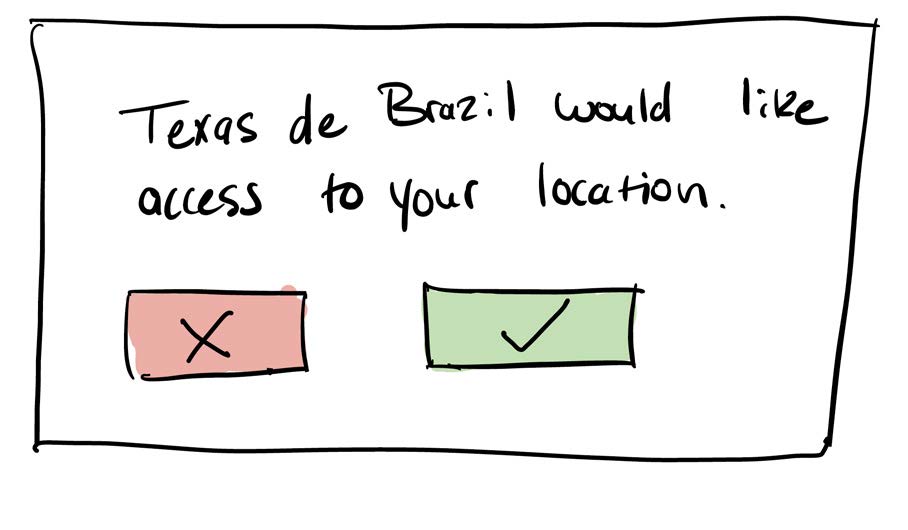 Texas de Brazil would like
access to your location.